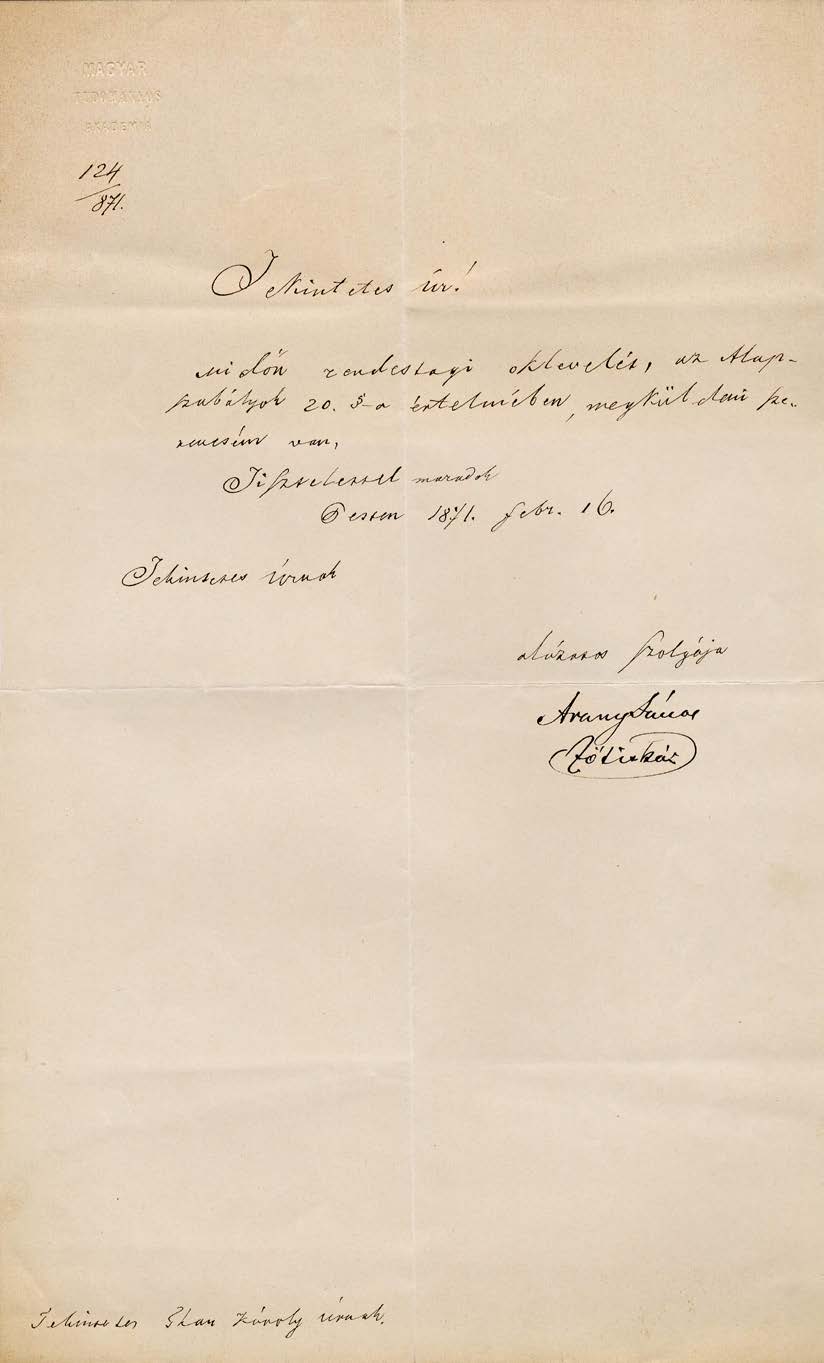 MAGYAR
TUDOMÁNYOS
AKADEMIA
124
/871.
Tekintetes úr!
Midőn rendestagi oklevelét, az Alap-
szabályok 20. §-a értelmében, megküldeni sze-
rencsém van,
Tisztelettel maradok
Pesten 1871. febr. 16.
Tekintetes úrnak
alázatos szolgája
Arany János
főtitkár
Tekintetes Than Károly úrnak.